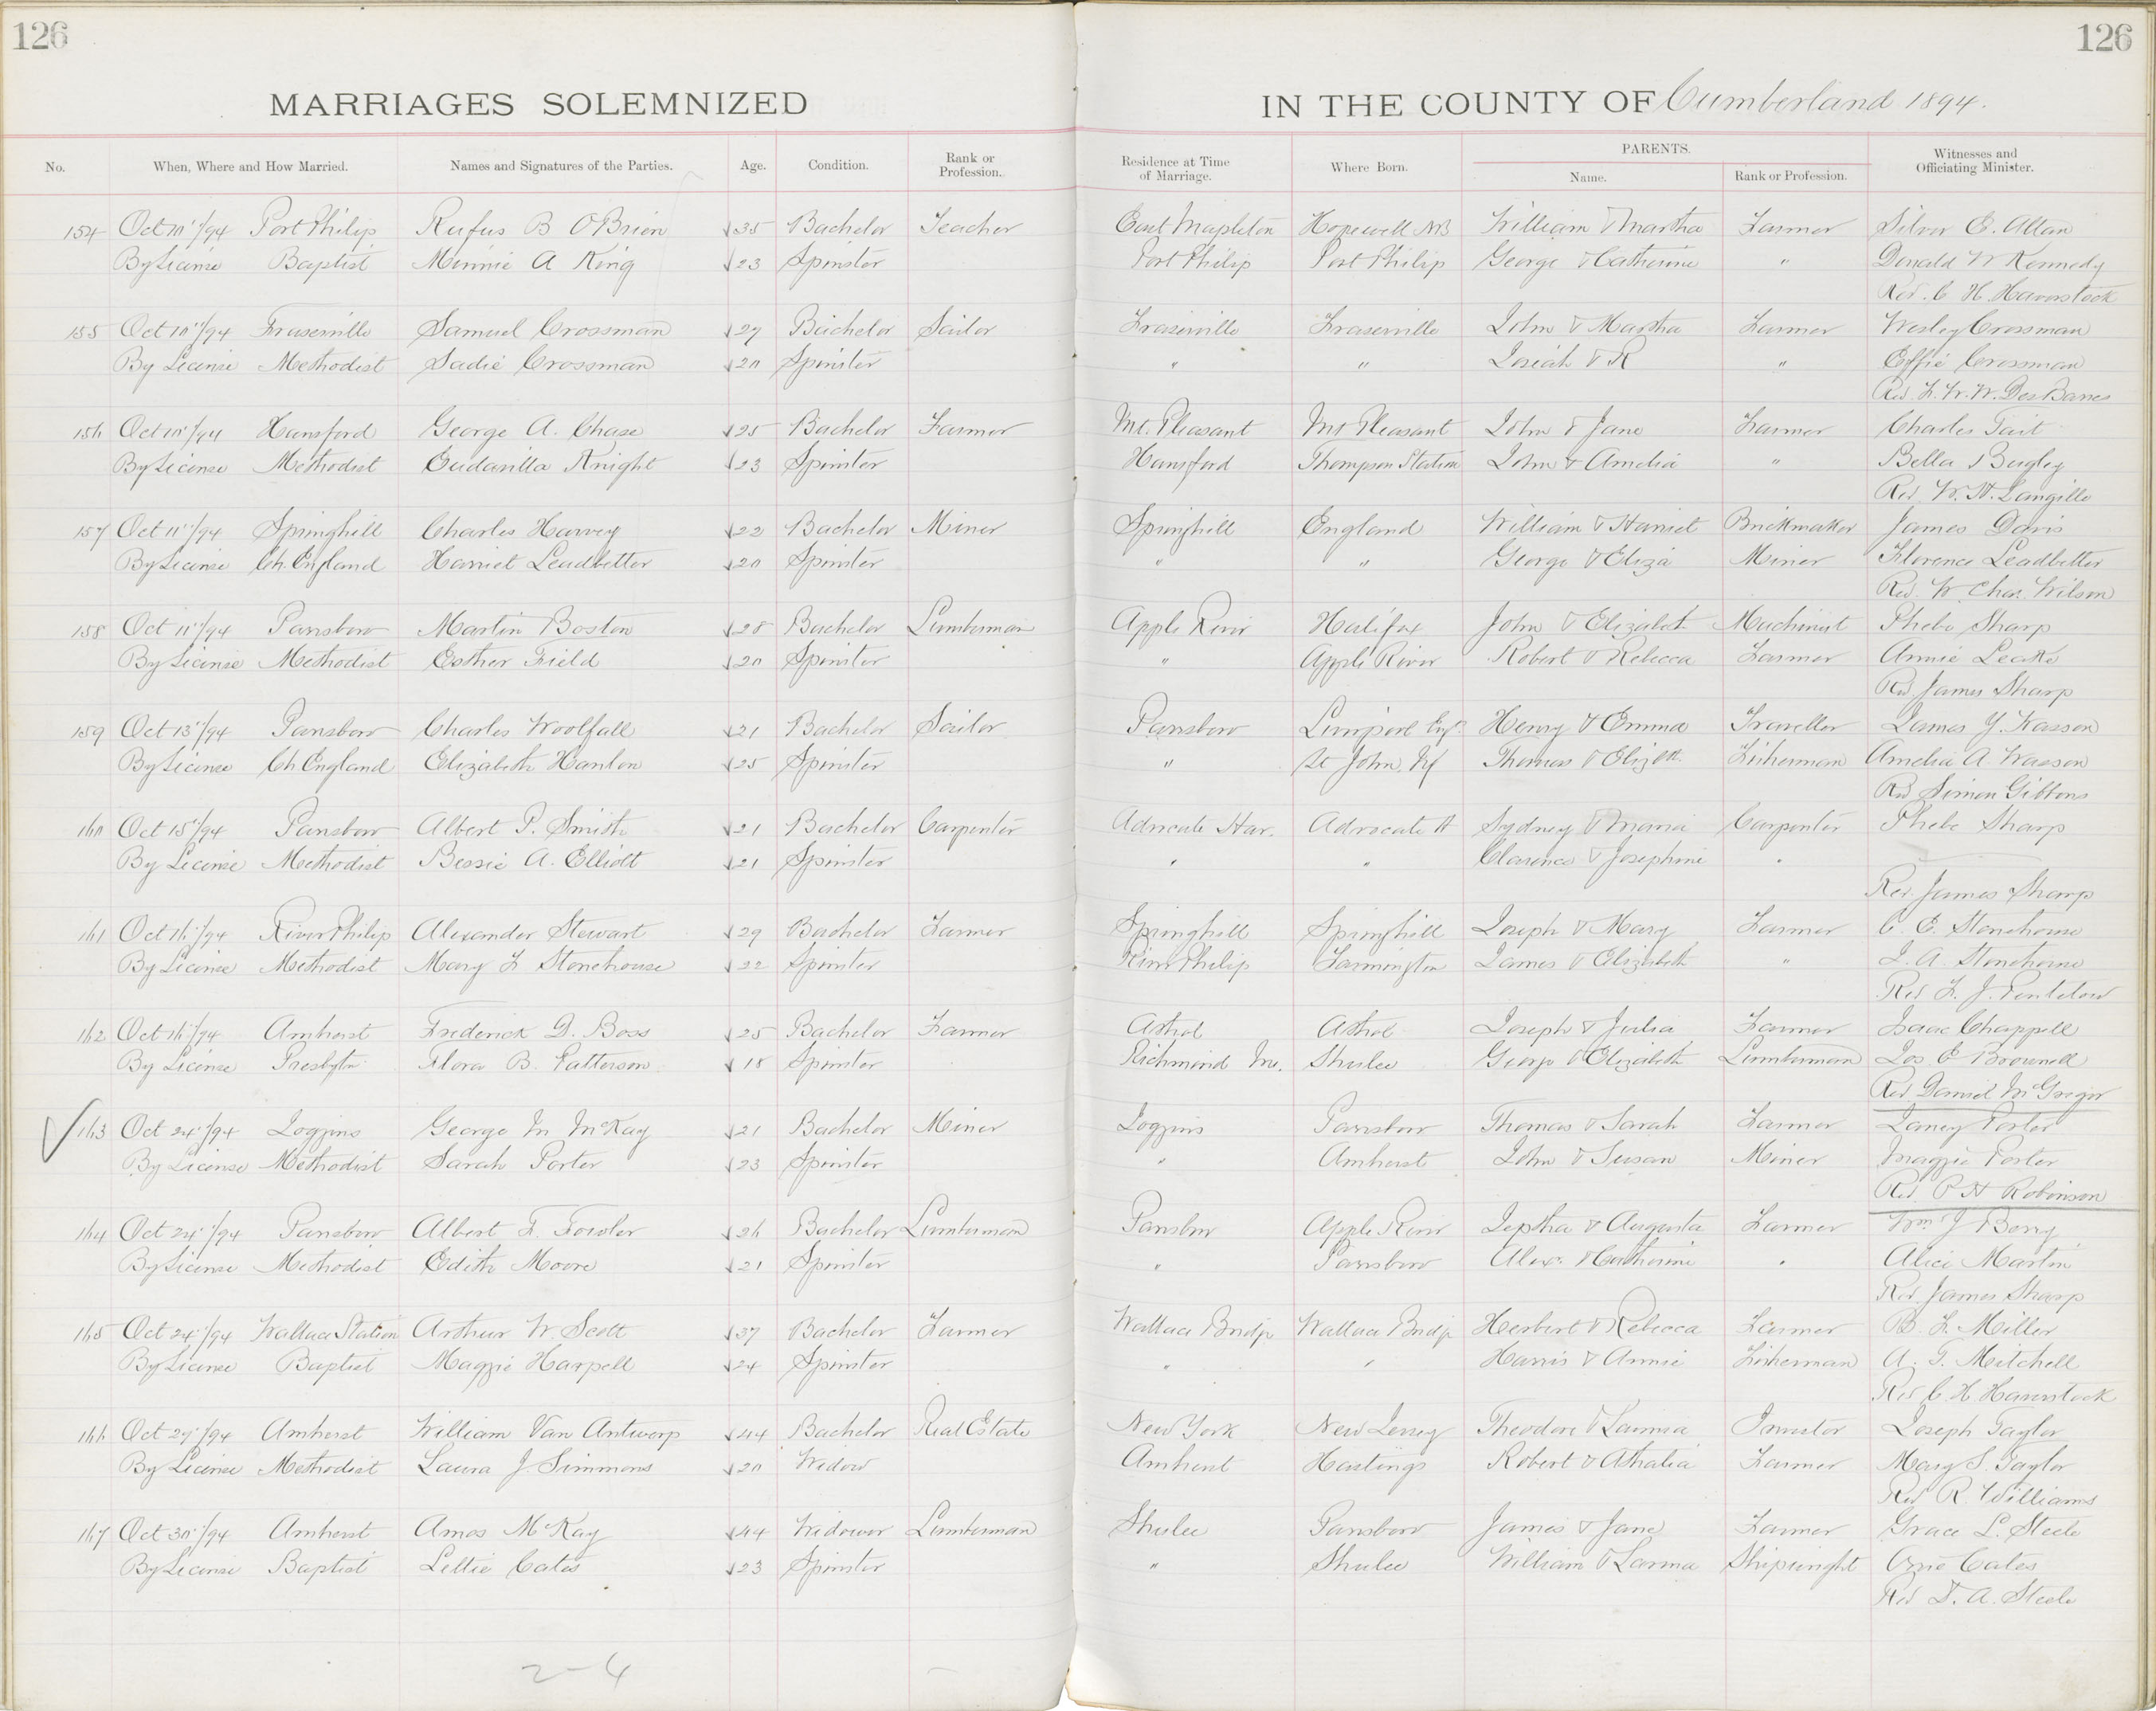 126
126
MARRIAGES SOLEMNIZED IN THE COUNTY OF Cumberland 1894.
No. When, Where and How Married. Names and Signatures of the Parties. Age. Condition. Rank or Profession. Residence at Time of Marriage. Where Born. PARENTS. Name. Rank or Profession. Witnesses and Officiating Minister.
154 Oct 10"/94 Port Philip Rufus B O'Brien 35 Bachelor Teacher East Mapleton Hopewell NB William & Martha Farmer E. Allan
By License Baptist Minnie A King 23 Spinster Port Philip Port Philip George & Catherine " Donald W Kennedy
Rev. C H Haverstock
155 Oct 10"/94 Fraserville Samuel Crossman 29 Bachelor Sailor Fraserville Fraserville John & Martha Farmer Wesley Crossman
By License Methodist Sadie Crossman 20 Spinster " " Josiah & R " Effie Crossman
Rev. F. W. W. DesBarres
156 Oct 10"/94 Hansford George A. Chase 25 Bachelor Farmer Mt. Pleasant Mt Pleasant John & Jane Farmer Charles Tait
By License Methodist Knight 23 Spinster Hansford Thompson Station John & Amelia " Bella
Rev W. H. Langille
157 Oct 11"/94 Springhill Charles Harvey 22 Bachelor Miner Springhill England William & Harriet Brickmaker James Davis
By License Ch. England Harriet Leadbetter 20 Spinster " " George & Eliza Miner Florence Leadbetter
Rev. W. Chas. Wilson
158 Oct 11"/94 Parrsboro Martin Boston 28 Bachelor Lumberman Apple River Halifax John & Elizabeth Machinist Phebe Sharp
By License Methodist Esther Field 20 Spinster " Apple River Robert & Rebecca Farmer Annie Leake
Rev James Sharp
159 Oct 13"/94 Parrsboro Charles Woolfall 21 Bachelor Sailor Parrsboro Liverpool Eng. Henry & Emma Traveller James Y. Wasson
By License Ch England Elizabeth Hanlon 25 Spinster " St John, Nf Thomas & Elizth Fisherman Amelia A. Wasson
Rev Simon Gibbons
160 Oct 15"/94 Parrsboro Albert P. Smith 21 Bachelor Carpenter Advocate Har. Advocate H Sydney & Maria Carpenter Phebe Sharp
By License Methodist Bessie A. Elliott 21 Spinster " " Clarence & Josephine "
Rev. James Sharp
161 Oct 16"/94 River Philip Alexander Stewart 29 Bachelor Farmer Springhill Springhill Joseph & Mary Farmer C. E. Stonehouse
By License Methodist Mary F Stonehouse 22 Spinster River Philip Farmington James & Elizabeth " J. A. Stonehouse
Rev F. J. Pentelow
162 Oct 16"/94 Amherst Frederick D. Boss 25 Bachelor Farmer Athol Athol Joseph & Julia Farmer Isaac Chappell
By License Presbytn Flora B. Patterson 18 Spinster Richmond Me. Shulee George & Elizabeth Lumberman Jos E Brownell
Rev Daniel McGregor
163 Oct 24"/94 Joggins George M McKay 21 Bachelor Miner Joggins Parrsboro Thomas & Sarah Farmer Porter
By License Methodist Sarah Porter 23 Spinster " Amherst John & Susan Miner Maggie Porter
Rev. P H Robinson
164 Oct 24"/94 Parrsboro Albert F. Fowler 26 Bachelor Lumberman Parrsboro Apple River Jeptha & Augusta Farmer Wm J Berry
By License Methodist Edith Moore 21 Spinster " Parrsboro Alex. & Catherine " Alice Martin
Rev James Sharp
165 Oct 24"/94 Wallace Station Arthur W. Scott 37 Bachelor Farmer Wallace Bridge Wallace Bridge Herbert & Rebecca Farmer B. F. Miller
By License Baptist Maggie Harpell 24 Spinster " " Harris & Annie Fisherman A. T. Mitchell
Rev C. H Haverstock
166 Oct 29"/94 Amherst William Van Antwerp 44 Bachelor Real Estate New York New Jersey Theodore & Lavinia Investor Joseph Taylor
By License Methodist Laura J. Simmons 20 Widow Amherst Hastings Robert & Athalia Farmer Mary S. Taylor
Rev R. Williams
167 Oct 30"/94 Amherst Amos McKay 44 Widower Lumberman Shulee Parrsboro James & Jane Farmer Grace L. Steele
By License Baptist Lettie Cates 23 Spinster " Shulee William & Shipwright Cates
Rev D. A. Steele
2-4